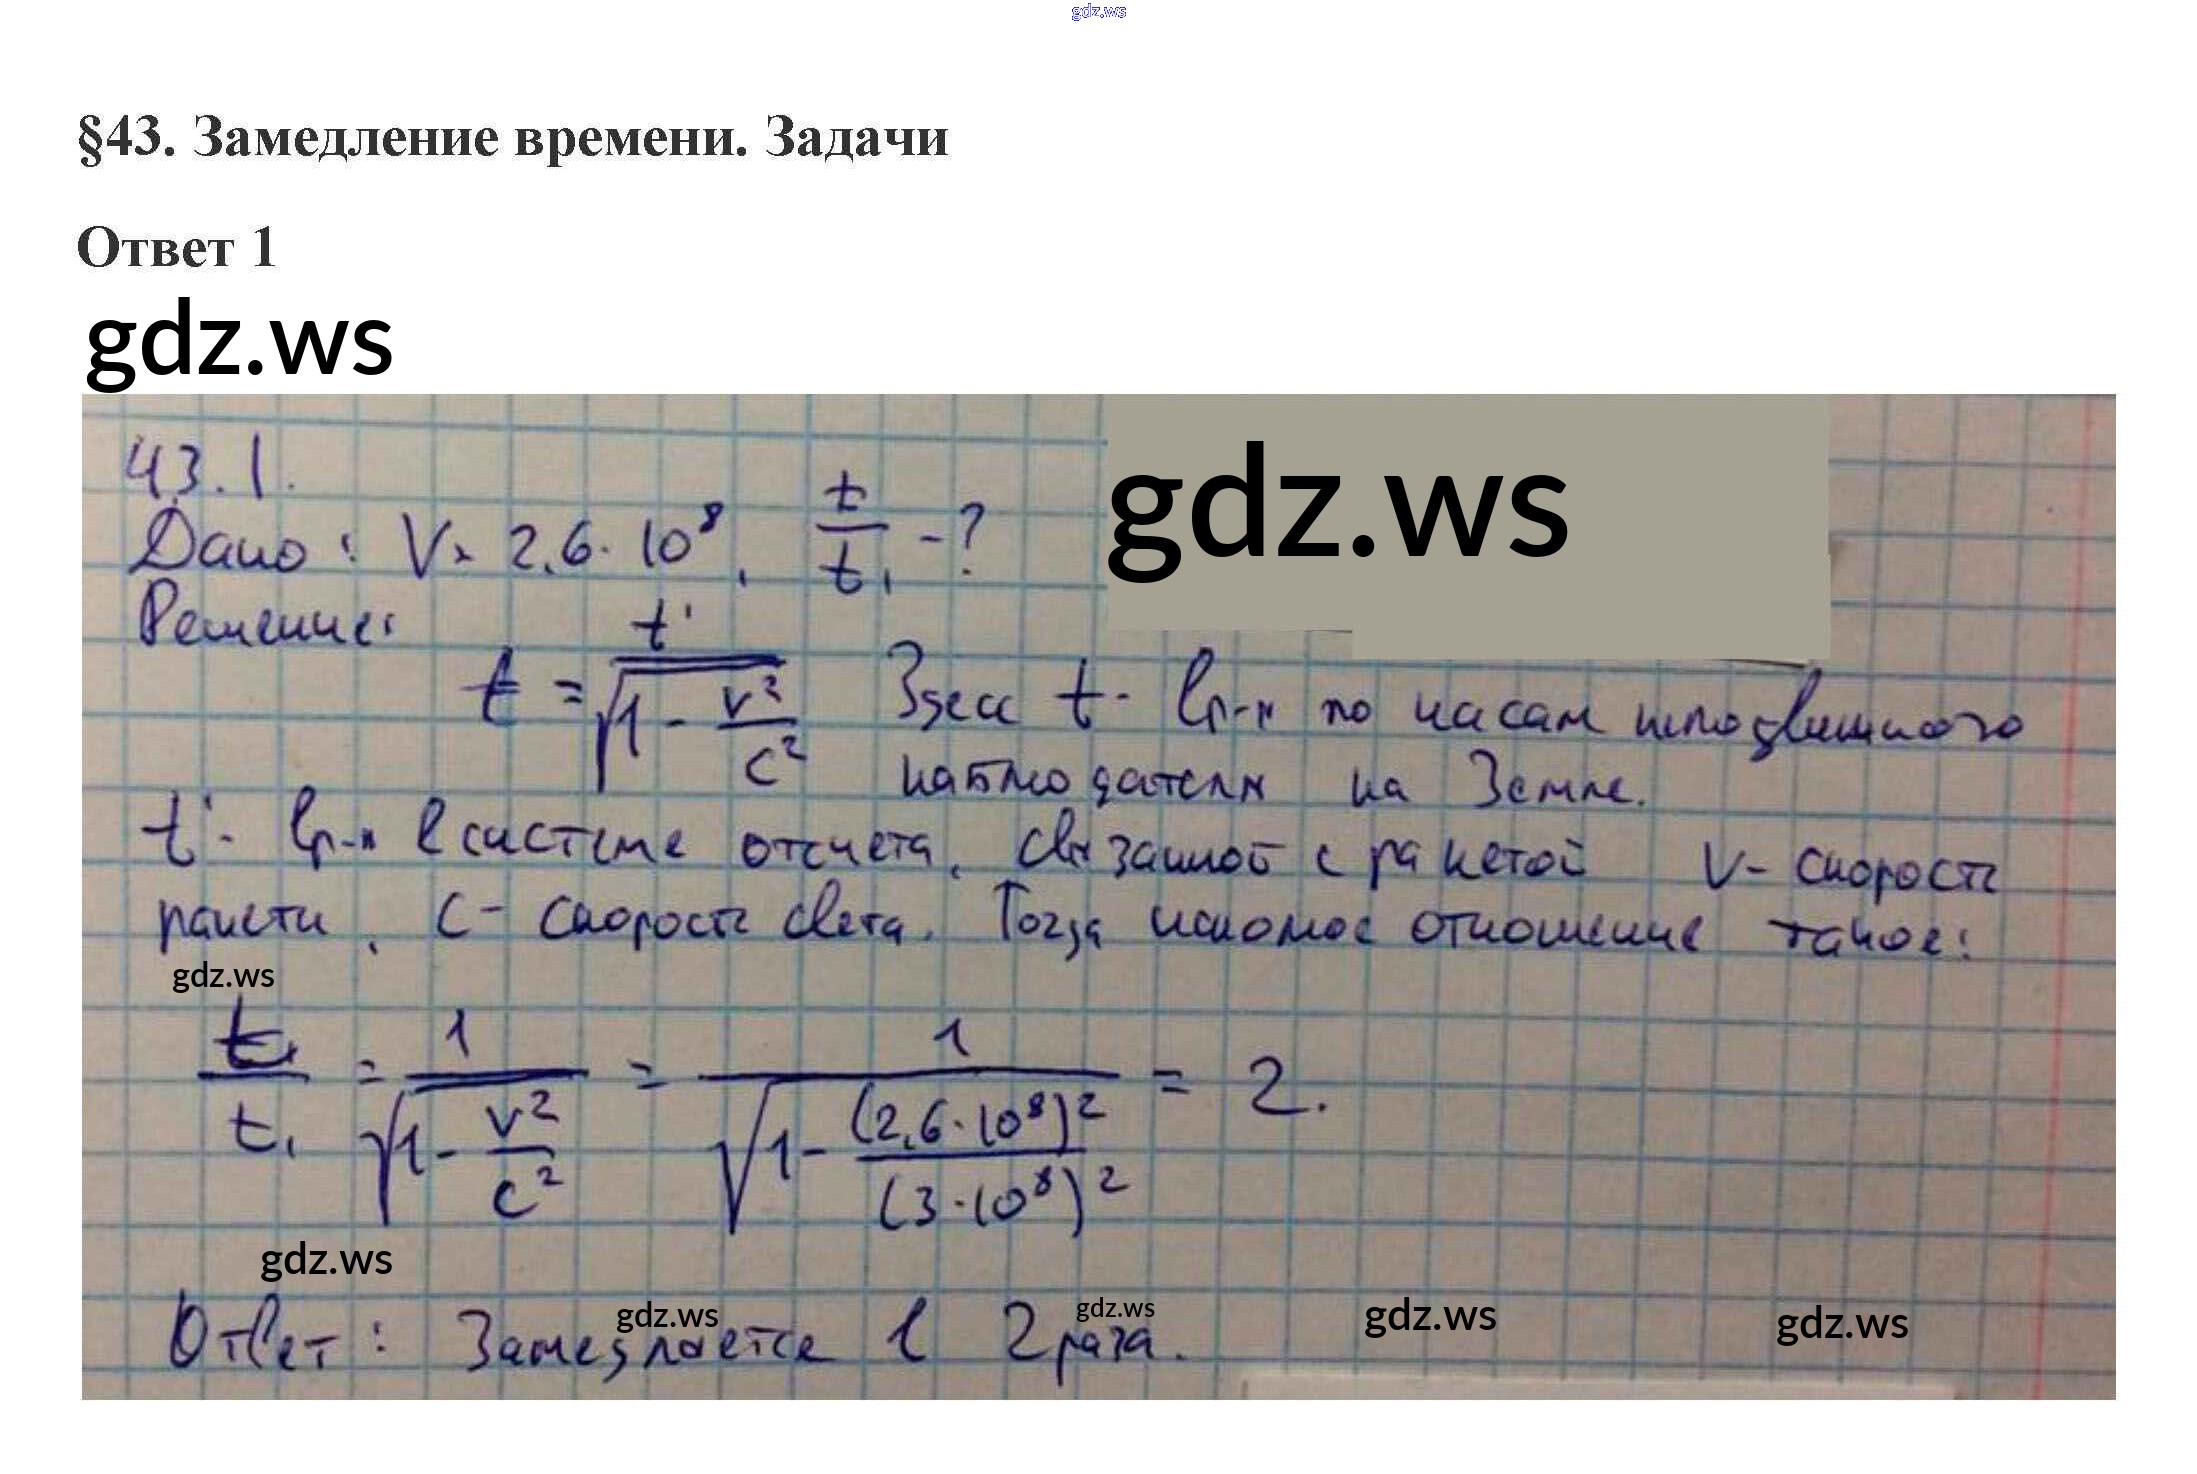 gdz.ws
§43. Замедление времени. Задачи
Ответ 1
gdz.ws
gdz.ws
43.1.
Дано: V = 2,6 · 10⁸, t/t₁ - ?
Решение:
t = t'/√(1 - v²/c²) Здесь t - вр-я по часам неподвижного
наблюдателя на Земле.
t' - вр-я в системе отсчета, связанной с ракетой V - скорость
ракеты, c - скорость света. Тогда искомое отношение такое:
gdz.ws
t/t₁ = 1/√(1 - v²/c²) = 1/√(1 - (2,6·10⁸)²/(3·10⁸)²) = 2.
gdz.ws
gdz.ws gdz.ws gdz.ws gdz.ws
Ответ: Замедляется в 2 раза.